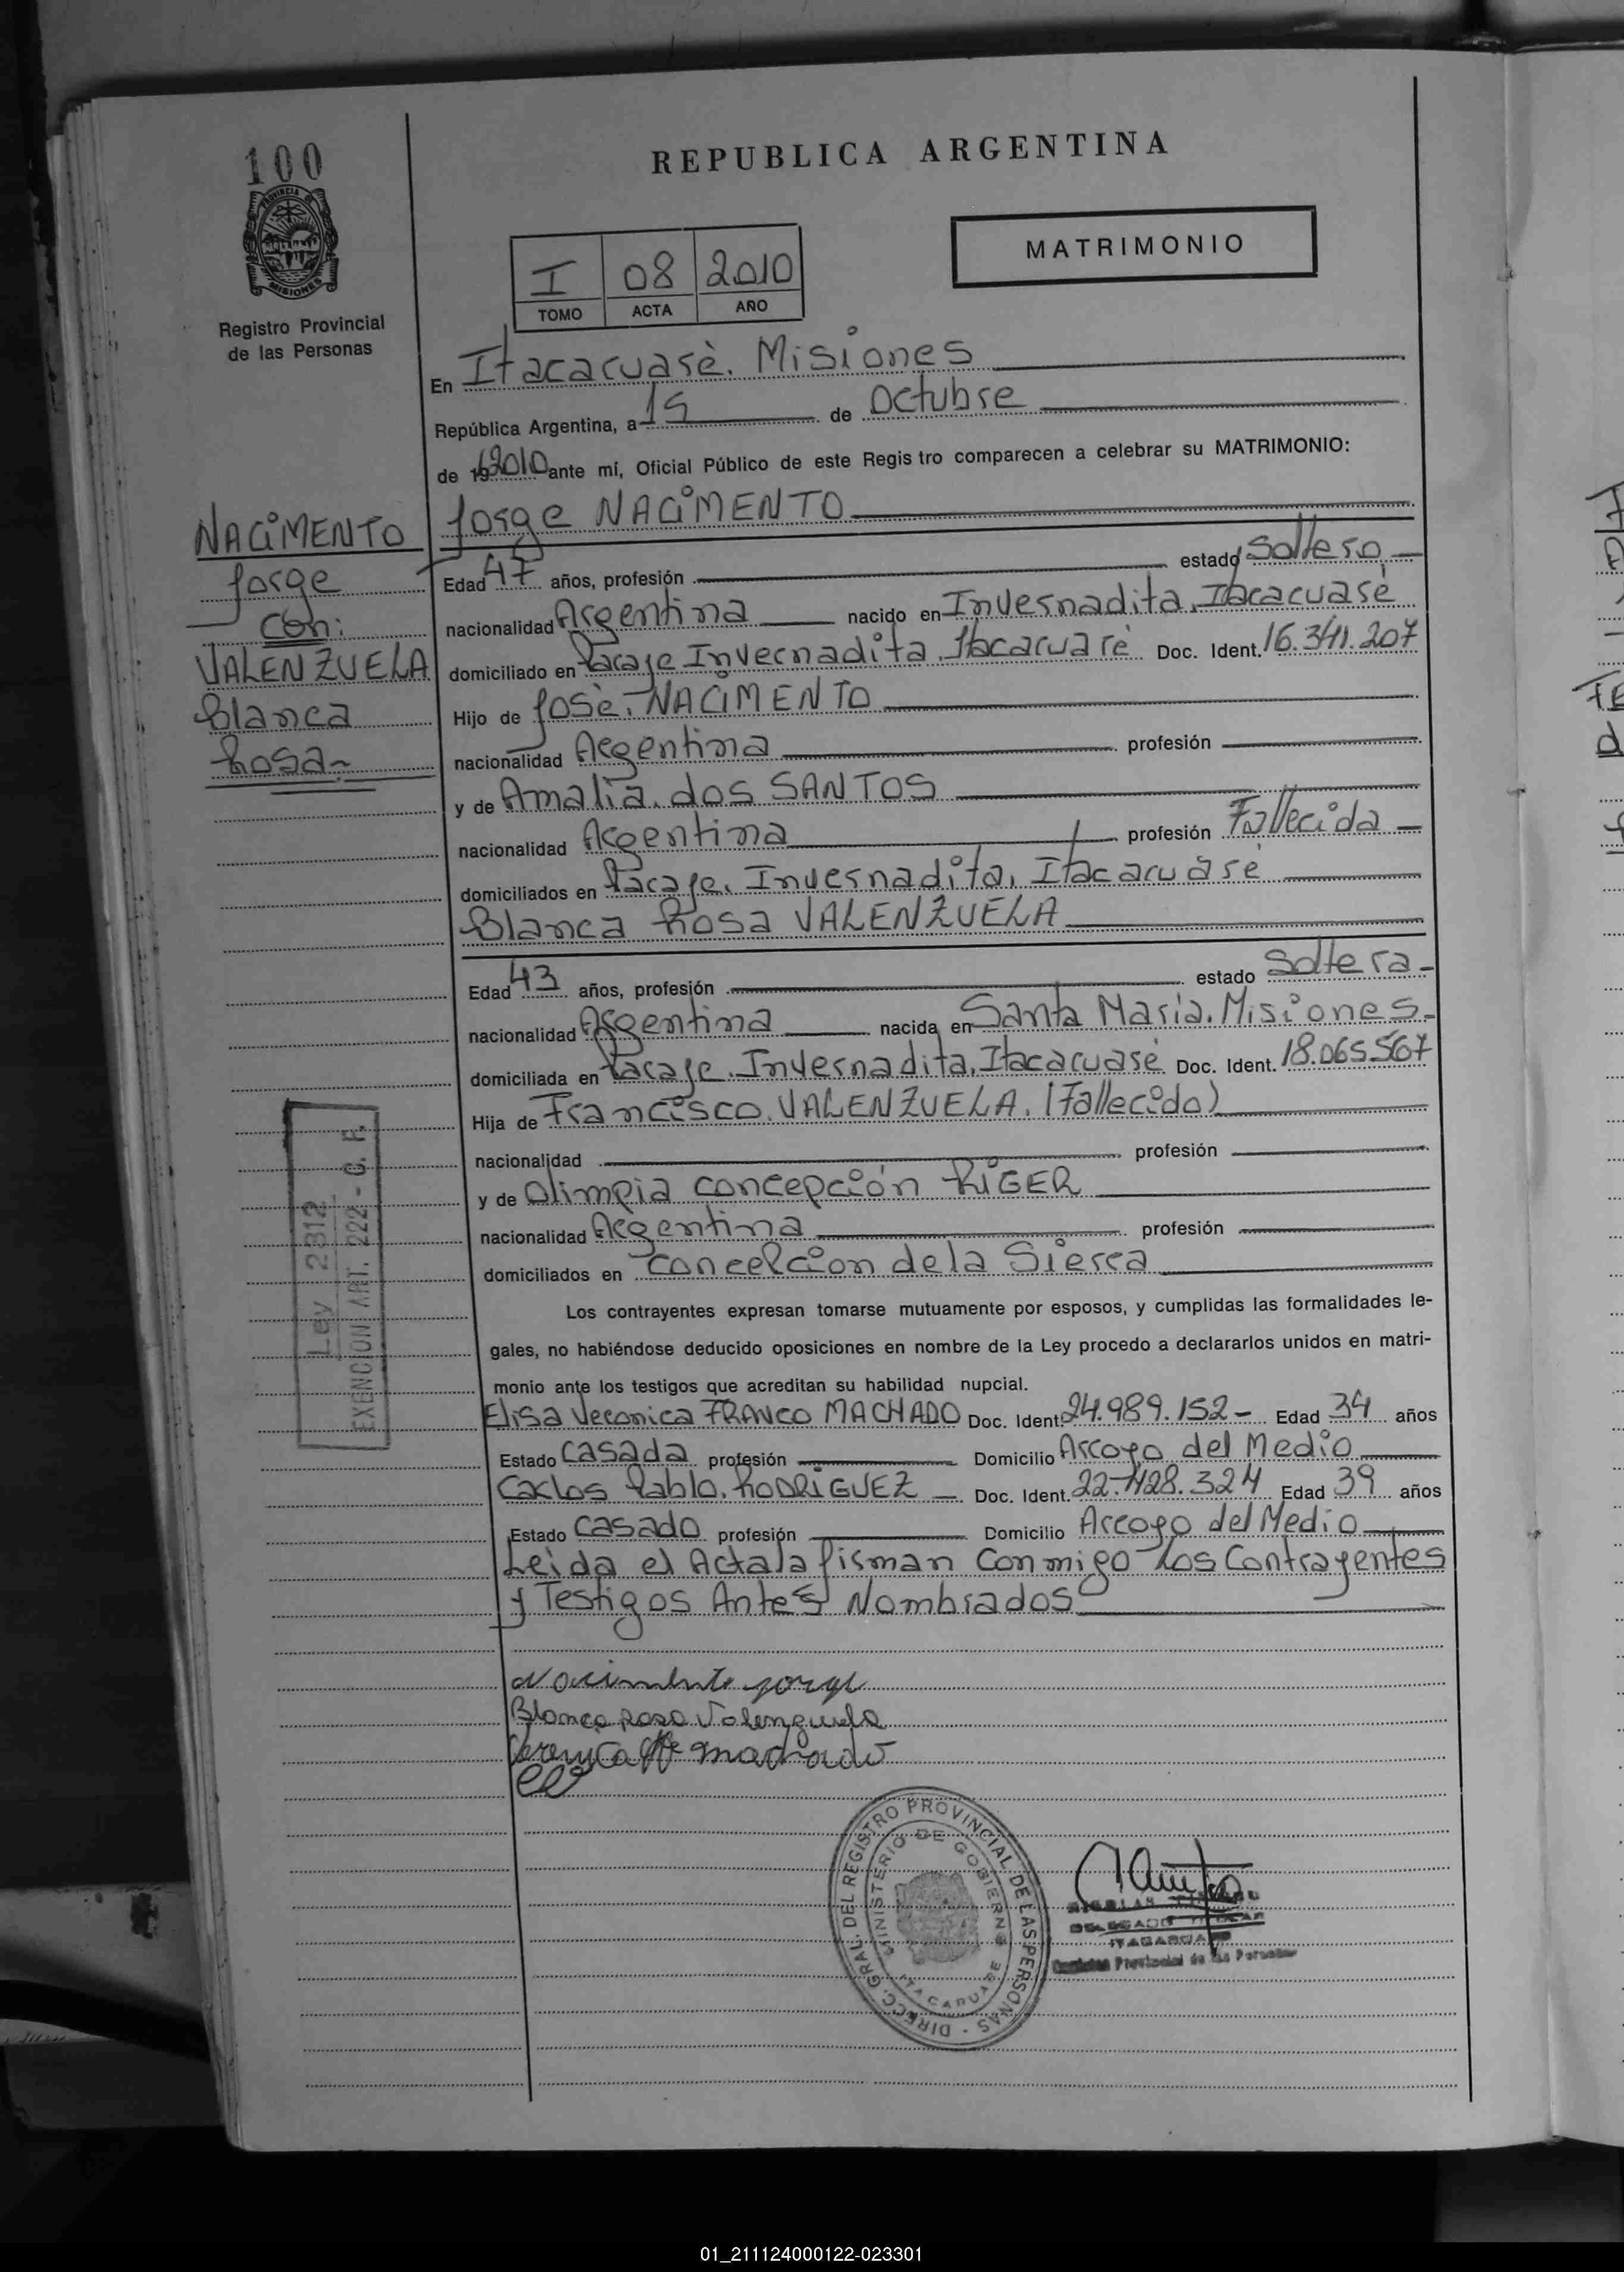 100
PROVINCIA DE
MISIONES
Registro Provincial
de las Personas
REPUBLICA ARGENTINA
I 08 2010
TOMO ACTA AÑO
MATRIMONIO
En Itacaruaré. Misiones
República Argentina, a 15 de Octubre
de 19 2010 ante mí, Oficial Público de este Regis tro comparecen a celebrar su MATRIMONIO:
NACiMENTO
Jorge
con:
VALENZUELA
Blanca
Rosa
Jorge NACiMENTO
Edad 47 años, profesión estado Soltero
nacionalidad Argentina nacido en Invernadita, Itacaruaré
domiciliado en Paraje Invernadita, Itacaruaré Doc. Ident. 16.341.207
Hijo de José. NACiMENTO
nacionalidad Argentina profesión
y de Amalia. dos SANTOS
nacionalidad Argentina profesión Fallecida
domiciliados en Paraje. Invernadita, Itacaruaré
Blanca Rosa VALENZUELA
Edad 43 años, profesión estado Soltera
nacionalidad Argentina nacida en Santa María. Misiones
domiciliada en Paraje. Invernadita, Itacaruaré Doc. Ident. 18.065.567
Hija de Francisco. VALENZUELA. (Fallecido)
nacionalidad profesión
y de Olimpia concepción RiGER
nacionalidad Argentina profesión
domiciliados en Concepcion de la Sierra
Ley 2812
EXENCION ART. 222 - C. F.
Los contrayentes expresan tomarse mutuamente por esposos, y cumplidas las formalidades le-
gales, no habiéndose deducido oposiciones en nombre de la Ley procedo a declararlos unidos en matri-
monio ante los testigos que acreditan su habilidad nupcial.
Elisa Veronica FRANCO MACHADO Doc. Ident. 24.989.152 - Edad 34 años
Estado casada profesión Domicilio Arroyo del Medio
Carlos Pablo. RODRiGUEZ Doc. Ident. 22.428.324 Edad 39 años
Estado casado profesión Domicilio Arroyo del Medio
Leida el Acta la firman Conmigo Los Contrayentes
y Testigos Antes Nombrados
Nacimento jorge
Blanca Rosa Valenzuela
DIRECC. GRAL. DEL REGISTRO PROVINCIAL DE LAS PERSONAS
MINISTERIO DE GOBIERNO
ITACARUARE
DELEGADO TITULAR
ITACARUARE
Provincial de las Personas
01_211124000122-023301